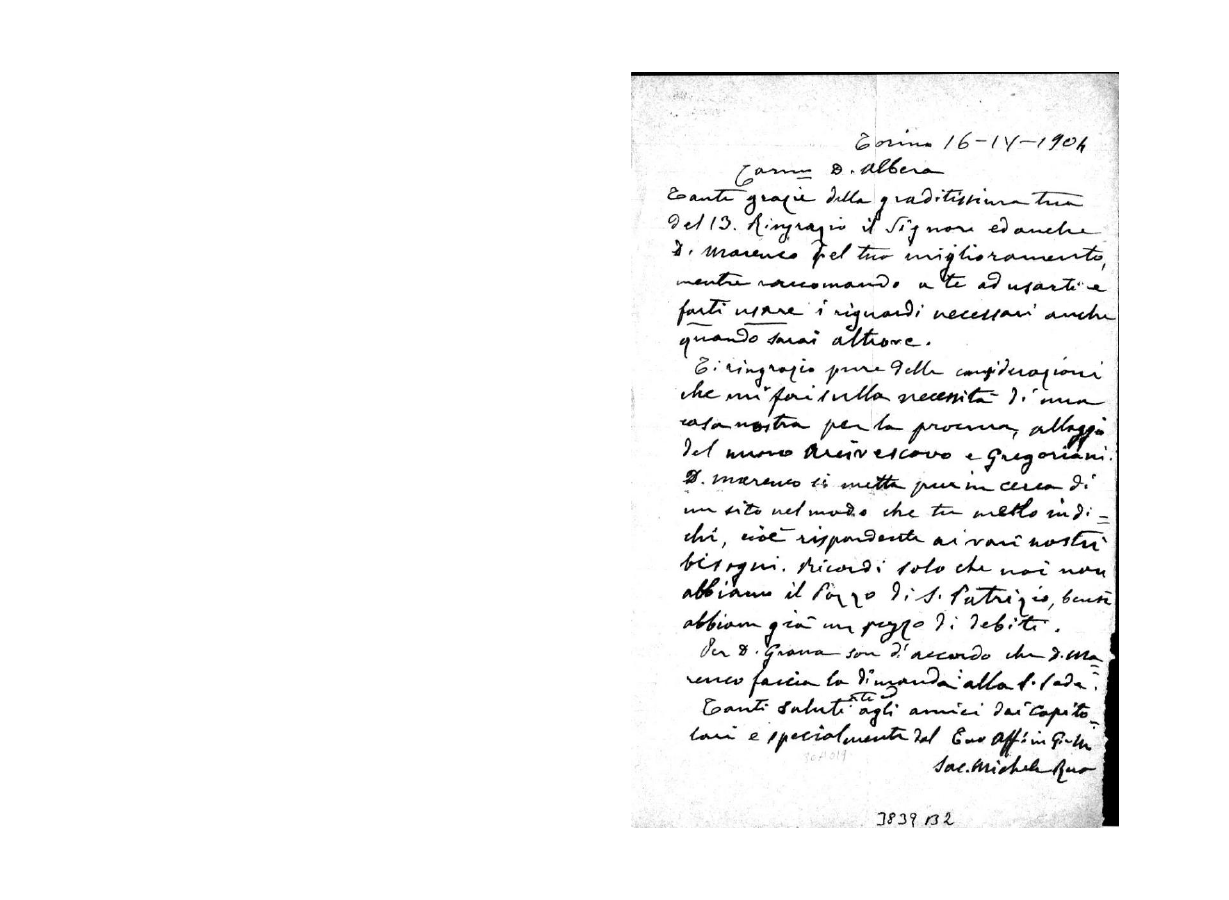 Torino 16-IV-1904
Carmo D. Albera
Tante grazie della graditissima tua
del 13. Ringrazio il Signore ed anche
D. Marenco pel tuo miglioramento,
mentre raccomando a te ad usarti e
farti usare i riguardi necessari anche
quando sarai altrove.
Ti ringrazio pure delle considerazioni
che mi fai sulla necessità di una
casa nostra per la procura, alloggio
del nuovo Arcivescovo e Gregoriani.
D. Marenco si metta pur in cerca di
un sito nel modo che tu indi=
chi, cioè rispondente ai vari nostri
bisogni. Ricordi solo che noi non
abbiamo il Pozzo di S. Patrizio, bensì
abbiam già un pozzo di debiti.
Per D. Grana son d'accordo che D. Ma=
renco faccia la dimanda alla S. Sede.
Tanti saluti a te ed agli amici dai Capito=
lari e specialmente dal Tuo Aff. in G. e M.
Sac. Michele Rua
3839 B2